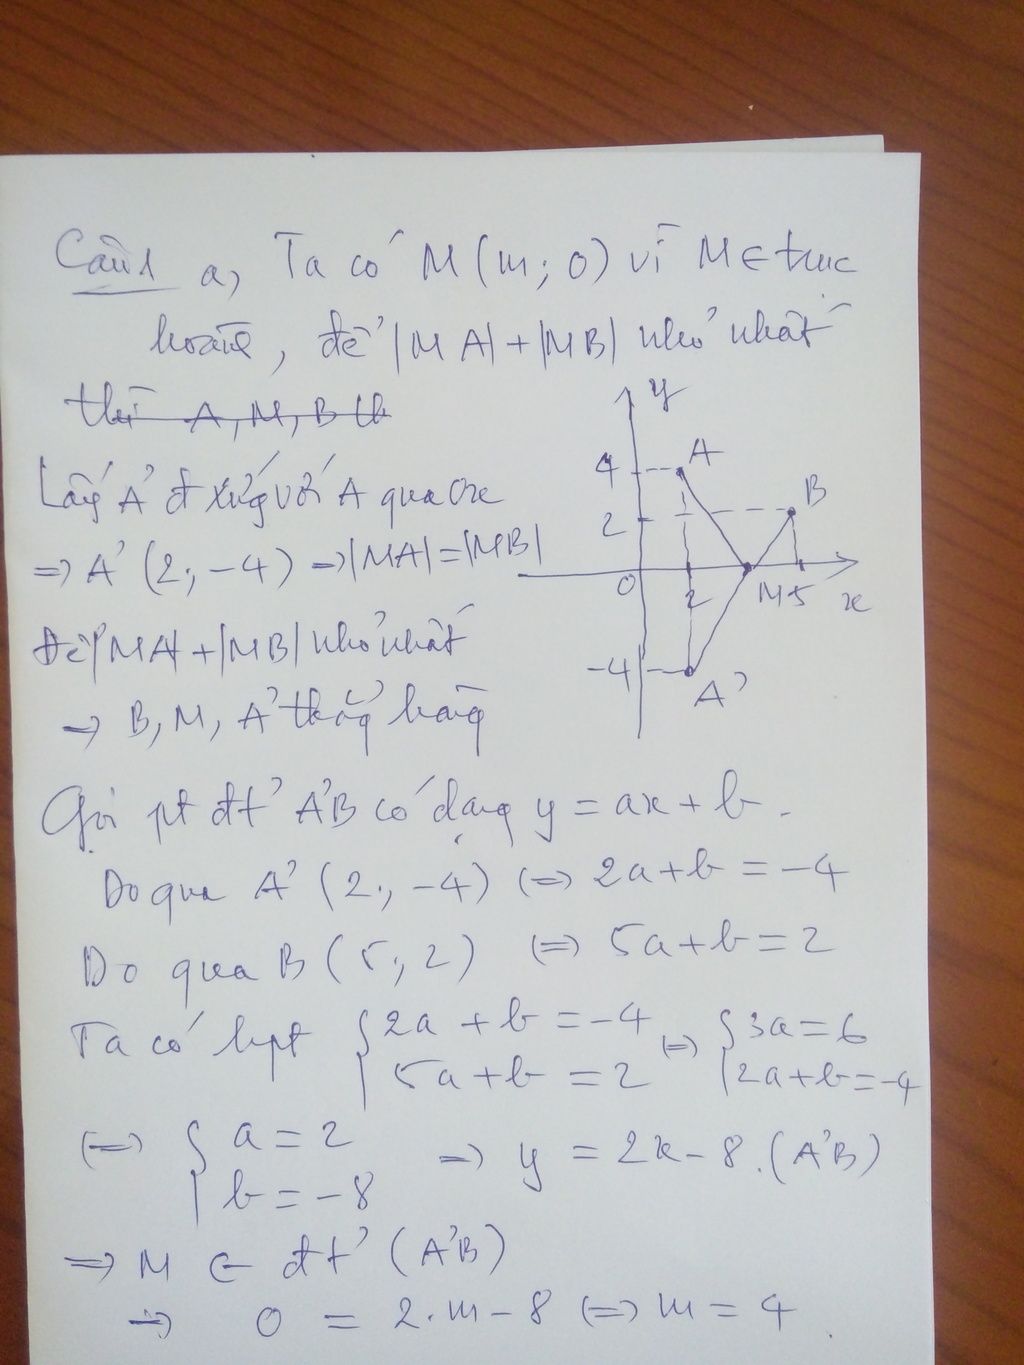 Câu 1 a, Ta có M(m; 0) vì M ∈ trục
hoành, để |MA| + |MB| nhỏ nhất
thì A, M, B th
Lấy A' đ xứng với A qua Ox
=> A' (2; -4) => |MA| = |MB|
Để |MA| + |MB| nhỏ nhất
=> B, M, A' thẳng hàng
y
4 A
2 B
0 2 M 5 x
-4 A'
Gọi pt đt' A'B có dạng y = ax + b.
Do qua A' (2; -4) <=> 2a + b = -4
Do qua B (5; 2) <=> 5a + b = 2
Ta có hpt { 2a + b = -4 <=> { 3a = 6
5a + b = 2 2a + b = -4
<=> { a = 2 => y = 2x - 8. (A'B)
b = -8
=> M ∈ đt' (A'B)
=> 0 = 2.m - 8 <=> m = 4.